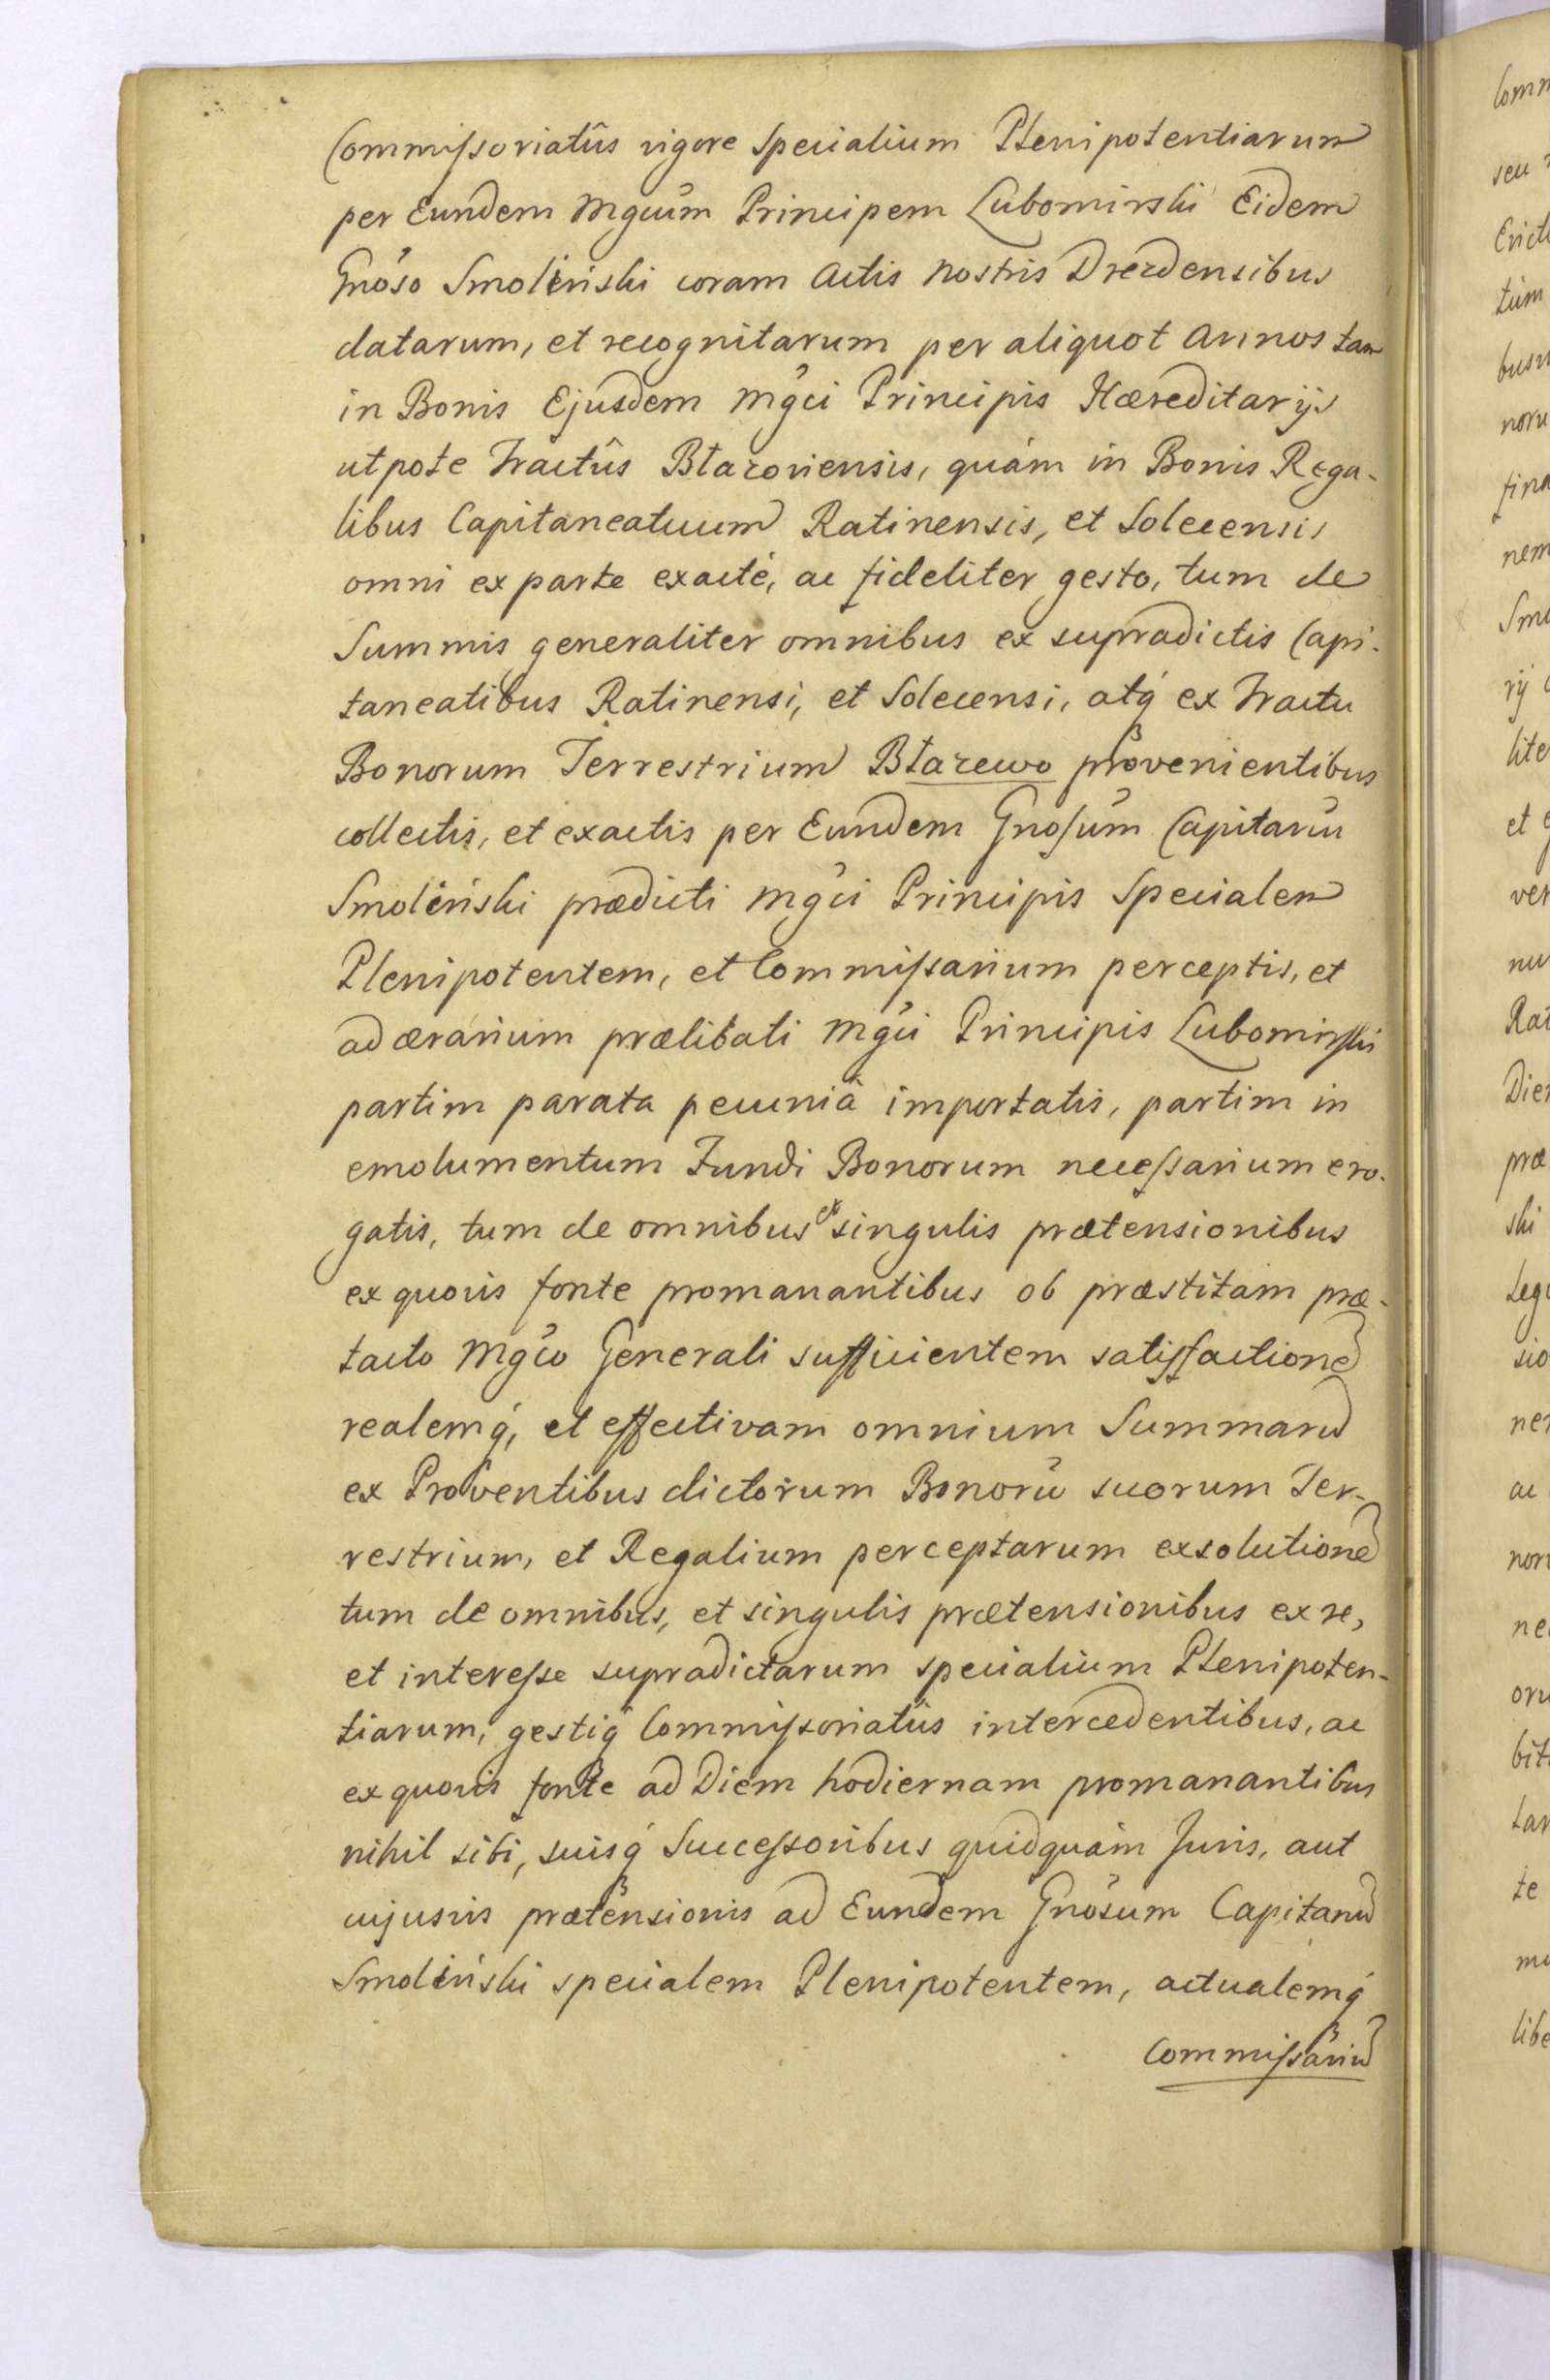 Commissoriatûs vigore specialium Plenipotentiarum
per Eundem Mgcum Principem Lubomirski Eidem
Gnoso Smoliński coram Actis nostris Drezdensibus
datarum, et recognitarum per aliquot Annos tam
in Bonis Ejusdem Mgci Principis Hæreditarijs
utpote Tractûs Błazoviensis, quám in Bonis Rega-
libus Capitaneatuum Ratinensis, et Solecensis
omni ex parte exacté, ac fideliter gesto, tum de
Summis generaliter omnibus ex supradictis Capi-
taneatibus Ratinensi, et Solecensi, atq́ ex Tractu
Bonorum Terrestrium Błazewo provenientibus
collectis, et exactis per Eundem Gnosum Capitanū
Smoliński prædicti Mgci Principis Specialem
Plenipotentem, et Commissarium perceptis, et
ad ærarium prælibati Mgci Principis Lubomirski
partim parata pecuniâ importatis, partim in
emolumentum Fundi Bonorum necessarium ero-
gatis, tum de omnibus et singulis prætensionibus
ex quovis fonte promanantibus ob præstitam præ-
tacto Mgco Generali sufficientem satisfactionē
realemq́, et effectivam omnium Summarū
ex Proventibus dictorum Bonorū suorum Ter-
restrium, et Regalium perceptarum exsolutionē
tum de omnibus, et singulis prætensionibus ex re,
et interesse supradictarum specialium Plenipoten-
tiarum, gestiq́ Commissoriatûs intercedentibus, ac
ex quovis fonte ad Diem hodiernam promanantibus
nihil sibi, suisq́ Successoribus quidquàm Juris, aut
cujusvis prætensionis ad Eundem Gnosum Capitanū
Smoliński specialem Plenipotentem, actualemq́
Commissariū